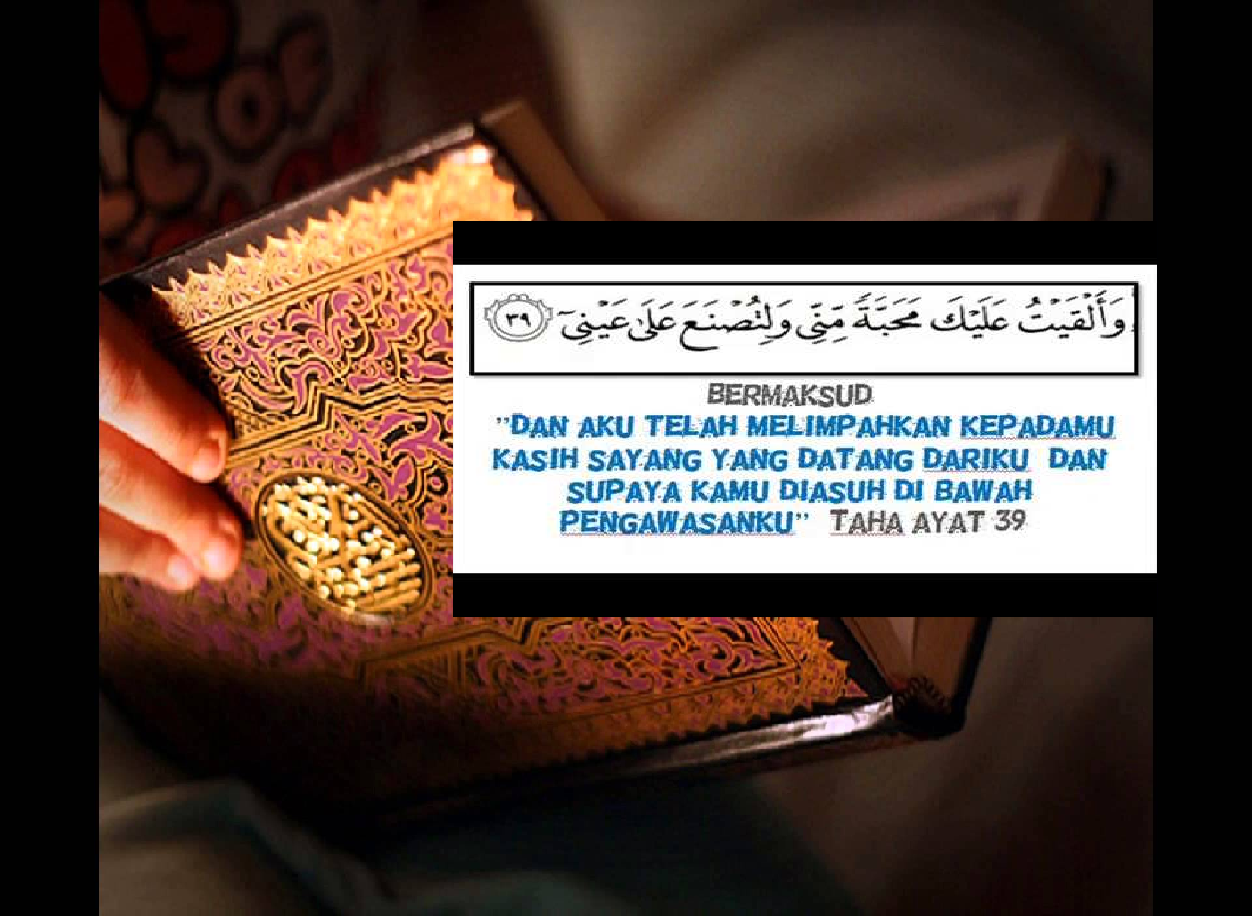 وَأَلْقَيْتُ عَلَيْكَ مَحَبَّةً مِّنِّي وَلِتُصْنَعَ عَلَىٰ عَيْنِيٓ ﴿٣٩﴾
BERMAKSUD
”DAN AKU TELAH MELIMPAHKAN KEPADAMU
KASIH SAYANG YANG DATANG DARIKU DAN
SUPAYA KAMU DIASUH DI BAWAH
PENGAWASANKU” TAHA AYAT 39